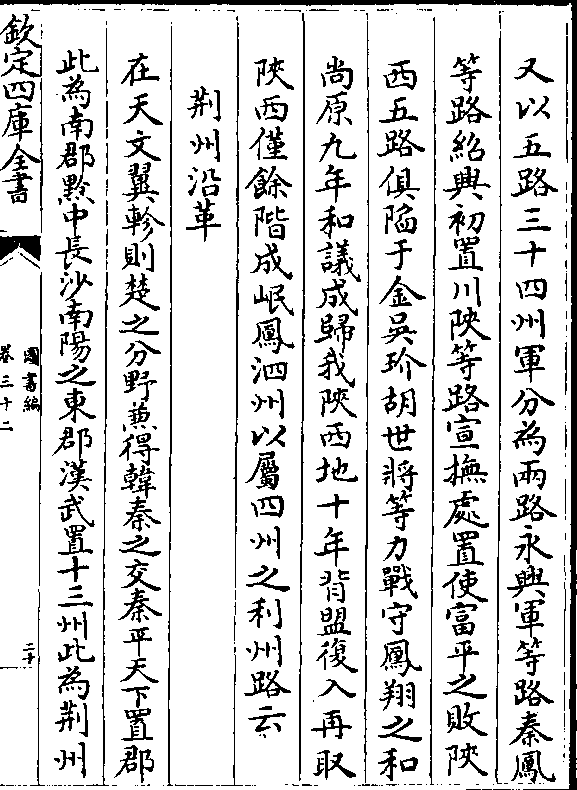 又以五路三十四州軍分為兩路永興軍等路秦鳳
等路紹興初置川陜等路宣撫處置使富平之敗陜
西五路俱陥于金吳玠胡世將等力戰守鳳翔之和
尚原九年和議成歸我陜西地十年背盟復入再取
陜西僅餘階成岷鳳泗州以屬四州之利州路云
荆州沿革
在天文翼軫則楚之分野兼得韓秦之交秦平天下置郡
此為南郡黔中長沙南陽之東郡漢武置十三州此為荆州
欽定四庫全書
圖書編
卷三十二
二十